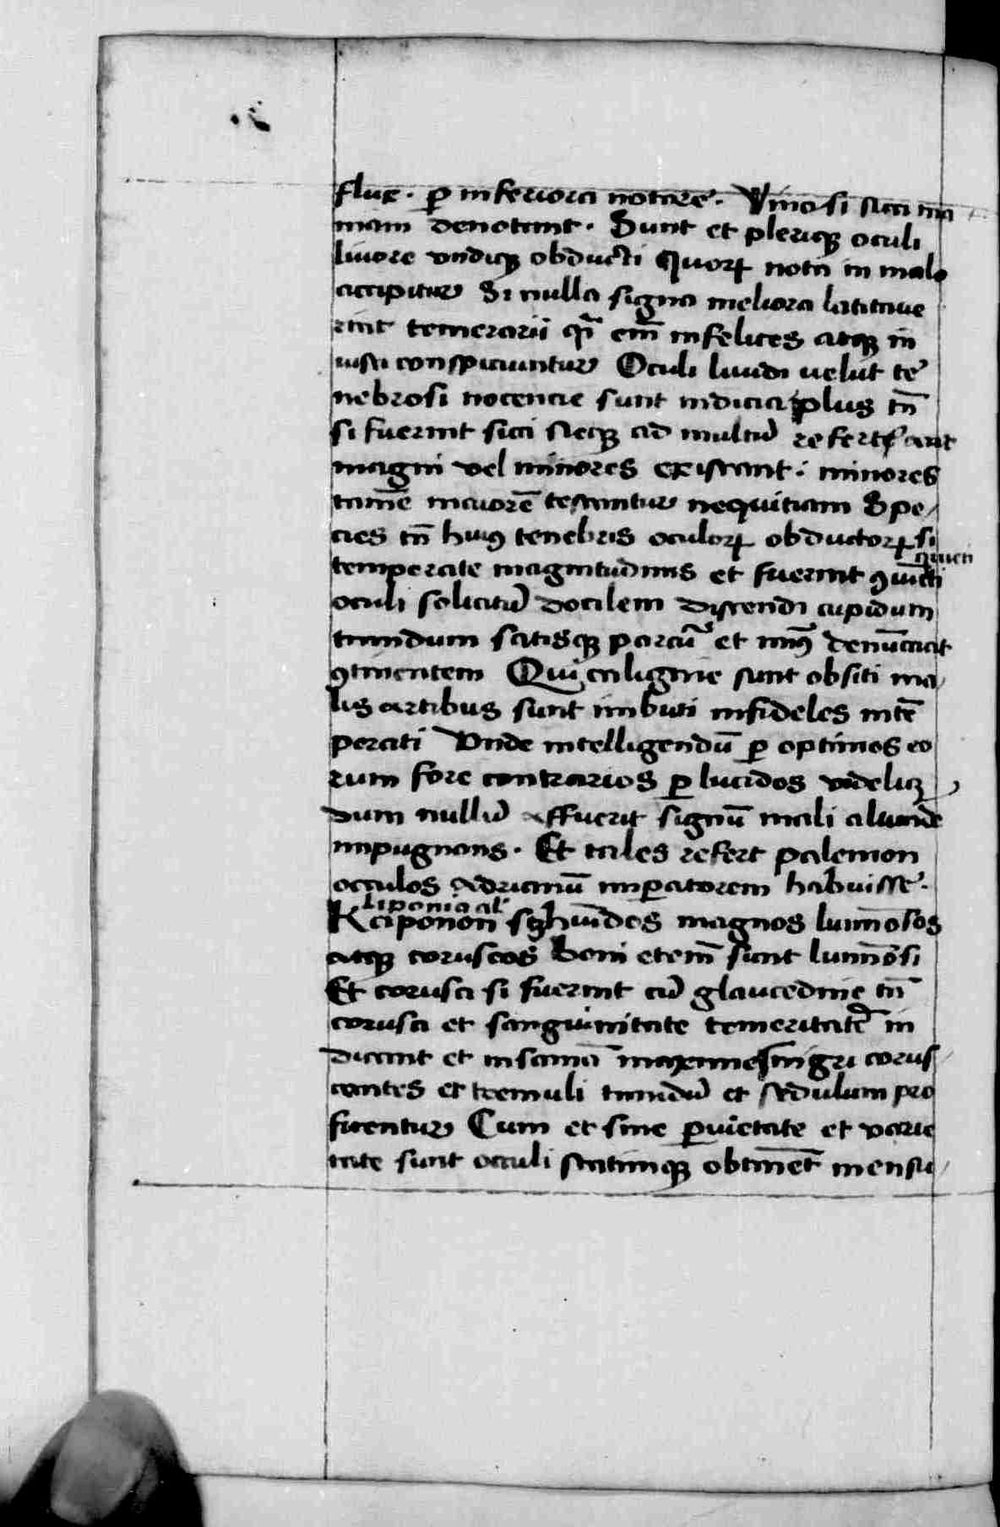 flue. p̱ inferiora notare᷒. Vino si sicci ma
niam denotant. Sunt et pleriqꝫ oculi
livore vndiqꝫ obducti quorꝝ nota in malo
accipitur Si nulla signa meliora latitave
rint temerarii eni᷒ infelices atqꝫ in
iusti conspiciuntur Oculi lividi velut te᷒
nebrosi nocencie sunt indicia plus tn̄
si fuerint sicci neqꝫ ad multū refert aut
magni vel minores existant. minores
tamē maiorē testantur nequitiam Spe/
cies tn̄ huiꝰ tenebris oculorꝝ obductorꝝ si
quieti
temperate magnitudinis et fuerint
oculi solicitū docilem discendi cupidum
timidum satisqꝫ parcū et denūciat
ꝯtinentem Qui caligine sunt obsiti ma/
lis artibus sunt imbuti infideles intē
perati Vnde intelligendū p̱ optimos eo
rum fore contrarios p̱ lucidos videlicꝫ
dum nullū affuerit signū mali aliunde
impugnans. Et tales refert palemon
occulos adrianū imp̱atorem habuisse᷒.
liponia al᷒
Kaponon sꝫ huīdos magnos luminosos
atqꝫ coruscos Boni etem̄ sunt luminosi
Et corusci si fuerint cū glaucedine tn̄
corusci et sanguinitate temeritatē in
dicant et insaniā maxime nigri corus/
cantes et tremuli timidū et sedulum pro
fitentur Cum et sine p̱vietate et varie
tate sunt occuli statimqꝫ obtinēt mensu/